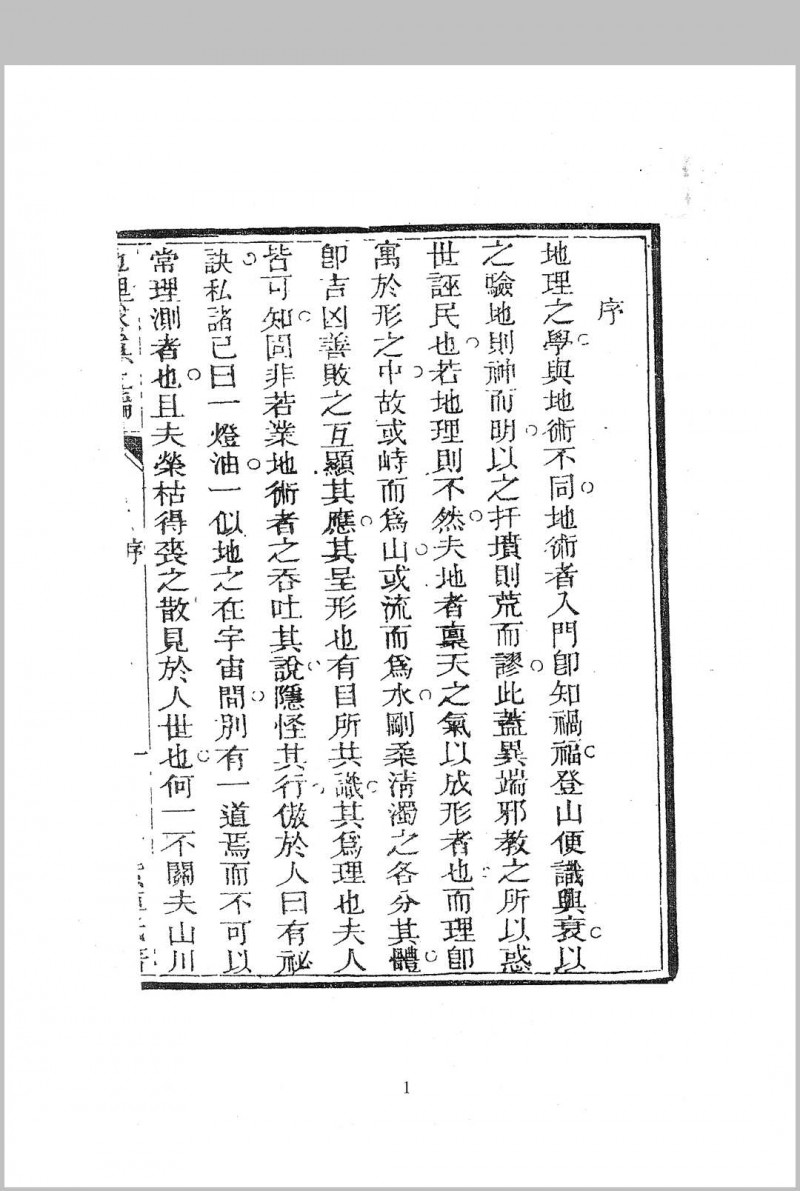 序
地理之學與地術不同地術者入門卽知禍福登山便識興衰以
之驗地則神而明以之扞墳則荒而謬此蓋異端邪教之所以惑
世誣民也若地理則不然夫地者稟天之氣以成形者也而理卽
寓於形之中故或峙而爲山或流而爲水剛柔淸濁之各分其體
卽吉凶善敗之互顯其應其呈形也有目所共識其爲理也夫人
皆可知固非若業地術者之吞吐其說隱怪其行傲於人曰有祕
訣私諸己曰一燈油一似地之在宇宙間別有一道焉而不可以
常理測者也且夫榮枯得喪之散見於人世也何一不關夫山川
序
1